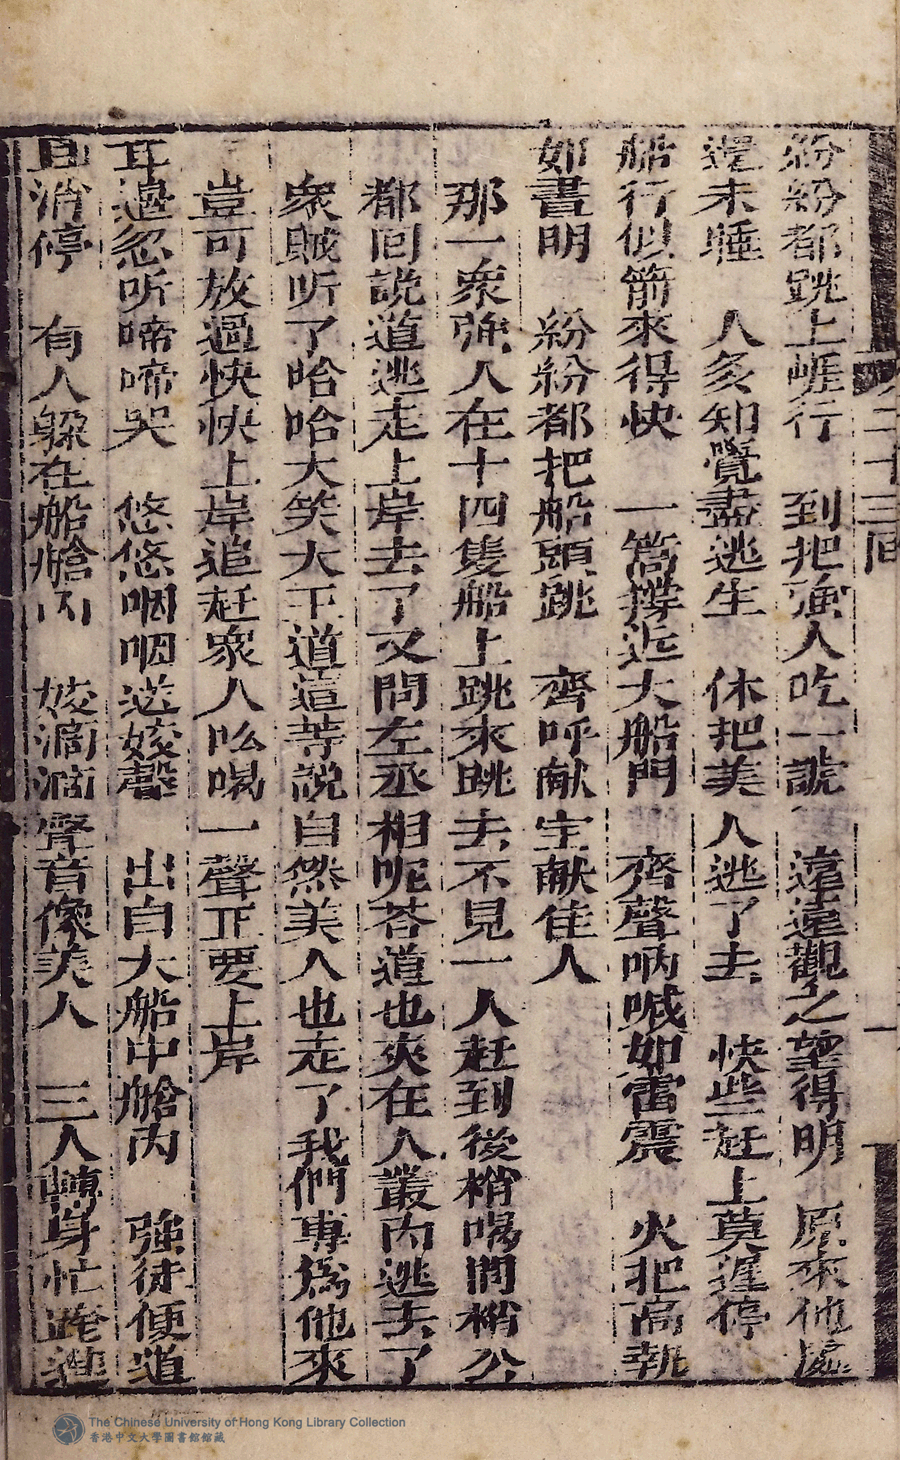 二十三回
一
紛紛都跳上崕行　到把強人吃一諕　遠遠觀之望得明　原來他處
還未睡　人多知覺盡逃生　休把美人逃了去　快些赶上莫遲停
船行似箭來得快　一篙撐近大船門　齊聲吶喊如雷震　火把高執
如晝明　紛紛都把船頭跳　齊呼献宝献佳人
那一衆強人在十四隻船上跳來跳去不見一人赶到後梢喝問梢公
都囘說道逃走上岸去了又問左丞相呢荅道也夾在人叢內逃去了
衆賊听了哈哈大笑大王道這等說自然美人也走了我們專爲他來
豈可放過快快上岸追赶衆人吆喝一聲正要上岸
耳邊忽听啼啼哭　悠悠咽咽送姣聲　出自大船中艙內　強徒便道
且消停　有人躲在船艙內　姣滴滴聲音像美人　三人轉身忙跑進
The Chinese University of Hong Kong Library Collection
香港中文大學圖書館館藏